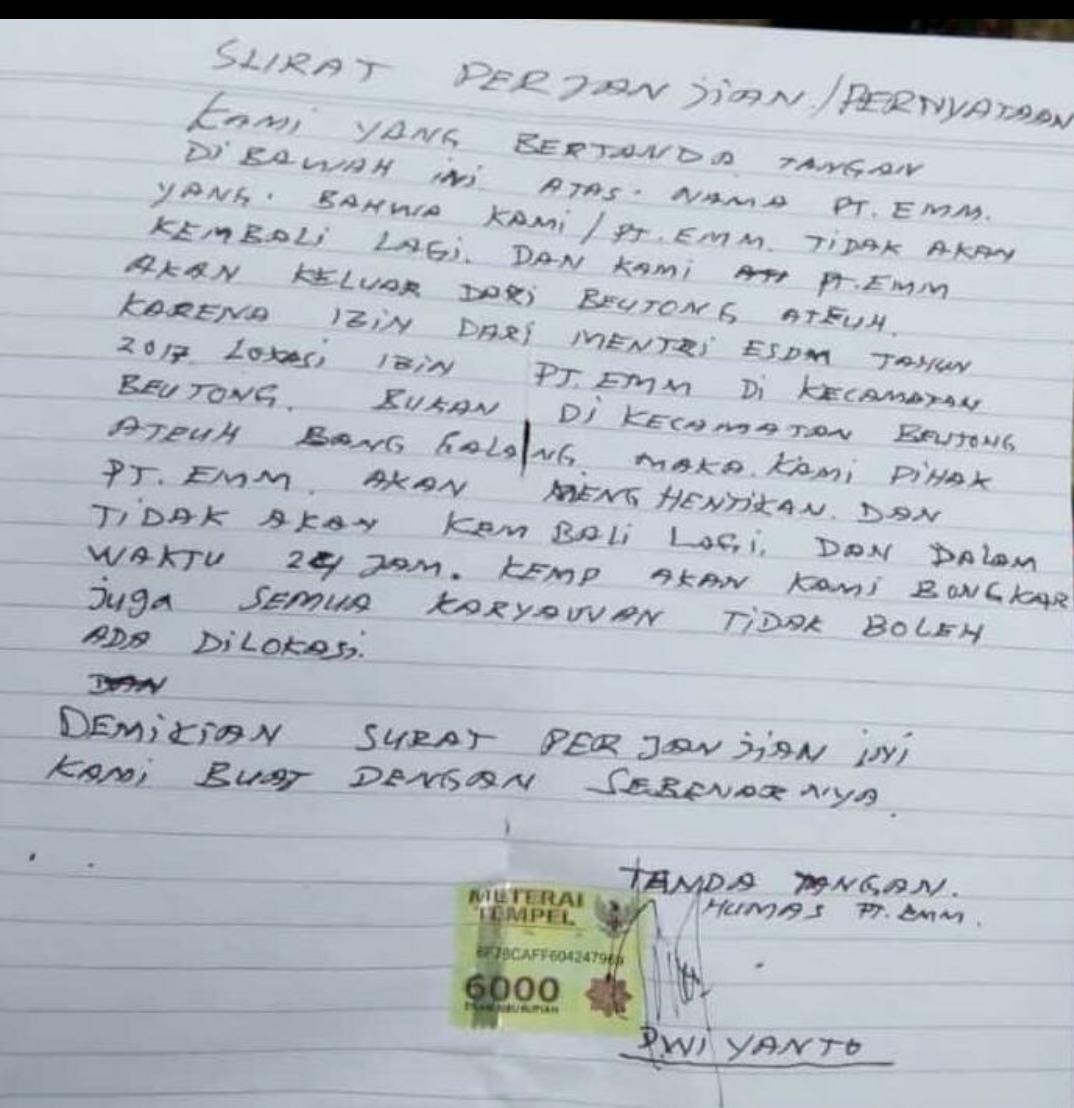 SURAT PERJANJIAN/PERNYATAAN
KAMI YANG BERTANDA TANGAN
DI BAWAH INI ATAS. NAMA PT. EMM.
YANG. BAHWA KAMI/PT. EMM. TIDAK AKAN
KEMBALI LAGI. DAN KAMI PT. EMM
AKAN KELUAR DARI BEUTONG ATEUH.
KARENA IZIN DARI MENTRI ESDM TAHUN
2017. LOKASI IZIN PT. EMM DI KECAMATAN
BEUTONG. BUKAN DI KECAMATAN BEUTONG
ATEUH BANG GALANG. MAKA. KAMI PIHAK
PT. EMM. AKAN MENGHENTIKAN. DAN
TIDAK AKAN KEMBALI LAGI. DAN DALAM
WAKTU 24 JAM. KEMP AKAN KAMI BONGKAR
JUGA SEMUA KARYAWAN TIDAK BOLEH
ADA DILOKASI.
DAN
DEMIKIAN SURAT PERJANJIAN INI
KAMI BUAT DENGAN SEBENARNYA.
TANDA TANGAN.
HUMAS PT. EMM.
METERAI
TEMPEL
6000
ENAM RIBU RUPIAH
DWI YANTO